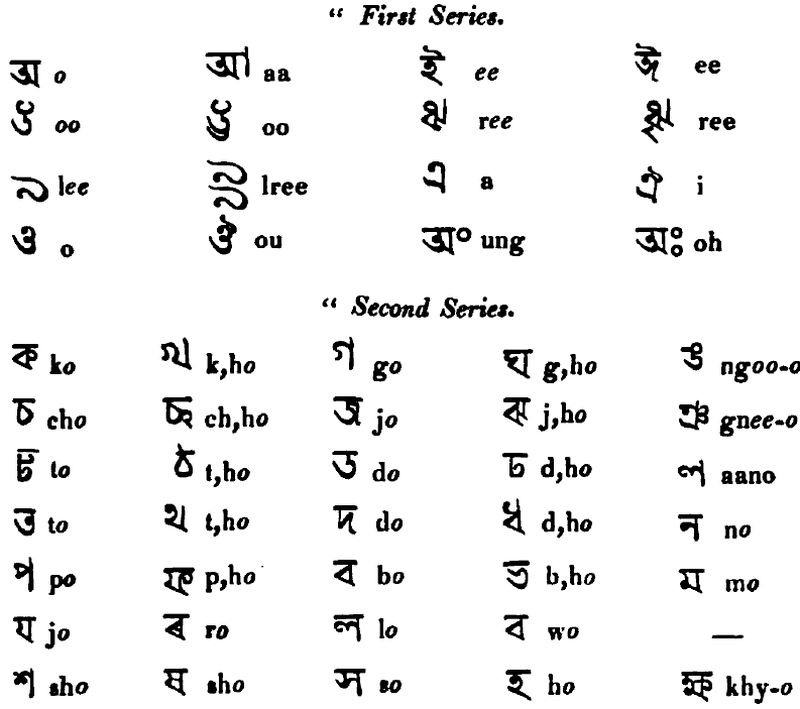 “ First Series.
অ o আ aa ই ee ঈ ee
উ oo ঊ oo ঋ ree ৠ ree
ঌ lee ৡ lree এ a ঐ i
ও o ঔ ou অং ung অঃ oh
“ Second Series.
ক ko খ k,ho গ go ঘ g,ho ঙ ngoo-o
চ cho ছ ch,ho জ jo ঝ j,ho ঞ gnee-o
ট to ঠ t,ho ড do ঢ d,ho ণ aano
ত to থ t,ho দ do ধ d,ho ন no
প po ফ p,ho ব bo ভ b,ho ম mo
য jo ৰ ro ল lo ব wo —
শ sho ষ sho স so হ ho ক্ষ khy-o